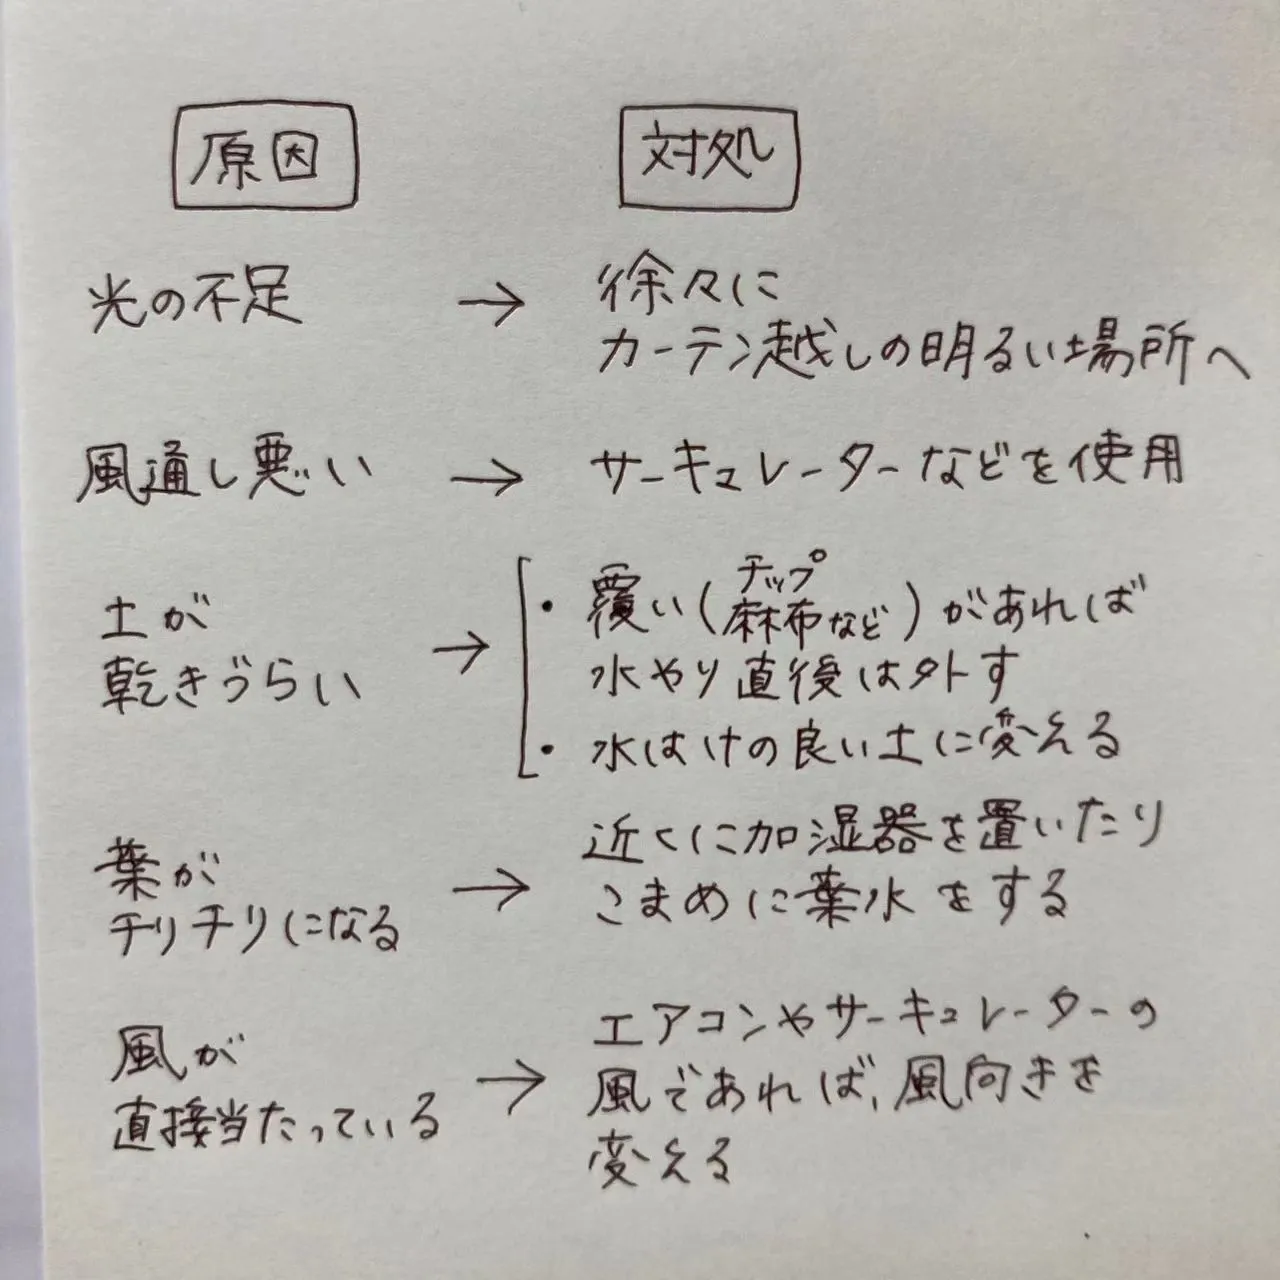 原因
対処
光の不足
→
徐々に
カーテン越しの明るい場所へ
風通し悪い
→
サーキュレーターなどを使用
土が
乾きづらい
→
・覆い(チップ
麻布など)があれば
水やり直後は外す
・水はけの良い土に変える
葉が
チリチリになる
→
近くに加湿器を置いたり
こまめに葉水をする
風が
直接当たっている
→
エアコンやサーキュレーターの
風であれば、風向きを
変える